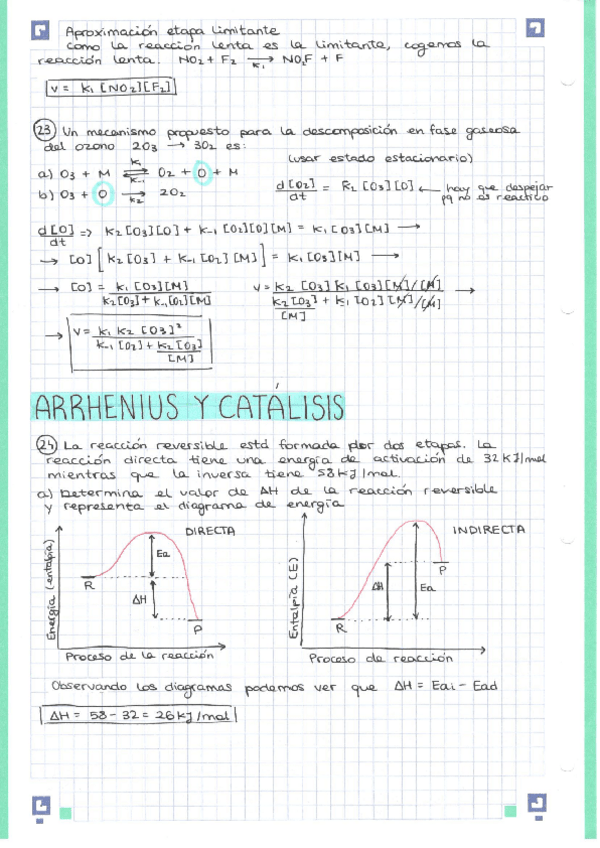 Aproximación etapa limitante
como la reacción lenta es la limitante, cogemos la
reacción lenta. NO2 + F2 →k1 NO2F + F
v = k1 [NO2][F2]
23 Un mecanismo propuesto para la descomposición en fase gaseosa
del ozono 2O3 → 3O2 es:
(usar estado estacionario)
a) O3 + M ⇌ k1 k-1 O2 + O + M
b) O3 + O → k2 2O2
d[O2]/dt = k2 [O3][O] ← hay que despejar
pq no es reactivo
d[O]/dt => k2 [O3][O] + k-1 [O2][O][M] = k1 [O3][M] →
→ [O] [k2 [O3] + k-1 [O2][M]] = k1 [O3][M]
→ [O] = k1 [O3][M] / k2[O3] + k-1[O2][M]
v = k2 [O3] k1 [O3][M]/[M] / k2 [O3]/[M] + k1 [O2][M]/[M] →
→ v = k1 k2 [O3]² / k-1 [O2] + k2 [O3]/[M]
ARRHENIUS Y CATÁLISIS
24 La reacción reversible está formada por dos etapas. La
reacción directa tiene una energía de activación de 32 KJ/mol
mientras que la inversa tiene 58 kJ/mol.
a) Determina el valor de ΔH de la reacción reversible
y representa el diagrama de energía
DIRECTA
Energía (entalpía)
R
Ea
ΔH
P
Proceso de la reacción
INDIRECTA
Entalpía (E)
R
ΔH
Ea
P
Proceso de reacción
Observando los diagramas podemos ver que ΔH = Eai - Ead
ΔH = 58 - 32 = 26 kJ/mol